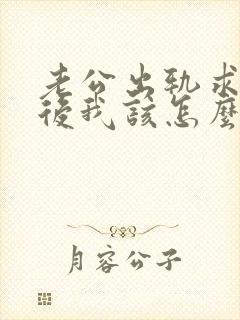 老公出轨求
後我該怎麼
月容公子